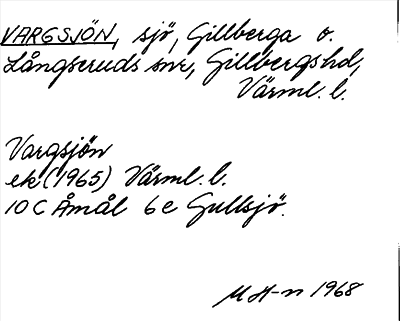 VARGSJÖN, sjö, Gillberga o.
Långseruds snr, Gillbergshd,
Värml. l.
Vargsjön
ek (1965) Värml. l.
10 C Åmål 6 e Gullsjö.
M H-n 1968